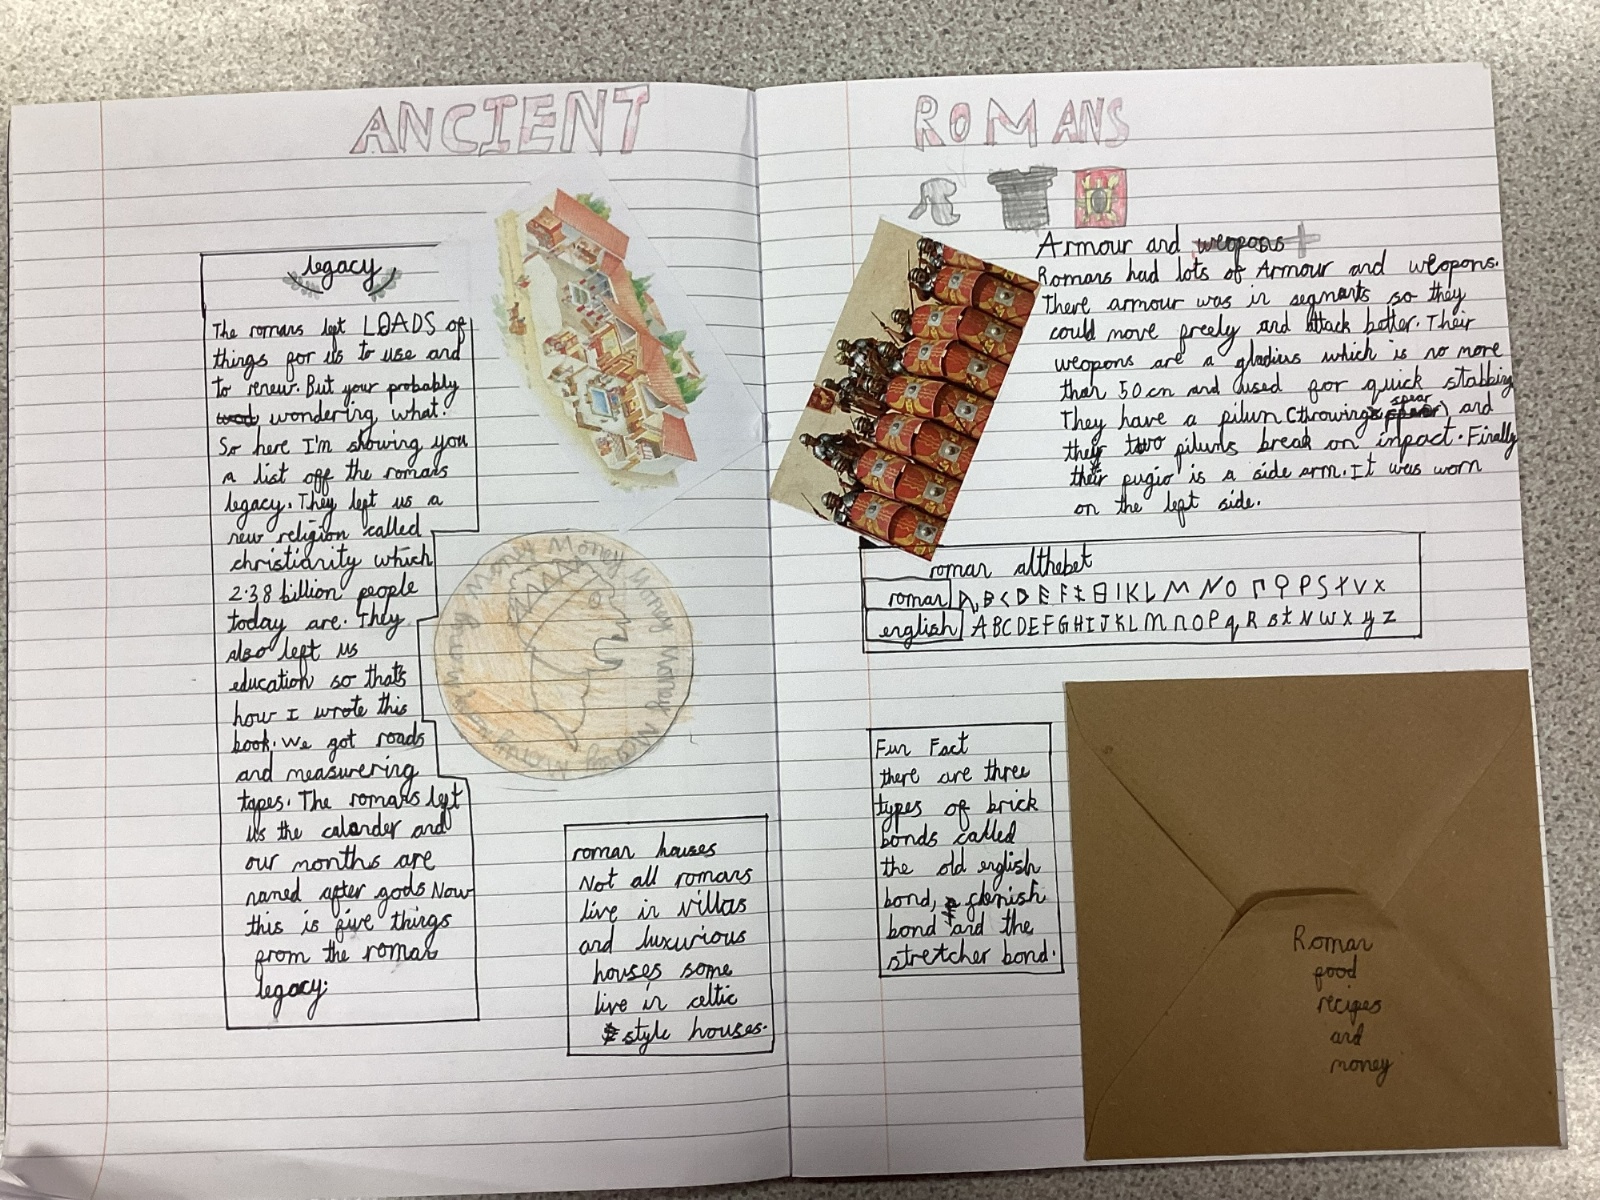 ANCIENT ROMANS
legacy
The romans left LOADS of
things for us to use and
to renew. But your probably
wondering what.
So here I'm showing you
a list off the romans
legacy. They left us a
new religion called
christiarity which
2.38 billion people
today are. They
also left us
education so that's
how I wrote this
book. We got roads
and measurering
tapes. The romans left
us the calander and
our months are
named after gods Now
this is five things
from the roman
legacy.
roman houses
Not all romans
live in villas
and luxurious
houses some
live in celtic
style houses.
Armour and weopons
Romans had lots of Armour and weopons.
There armour was in segmants so they
could move freely and attack better. Their
weopons are a gladius which is no more
than 50cm and used for quick stabbing
They have a pilum (throwing spear) and
they two pilums break on impact. Finally
their pugio is a side arm. It was worn
on the left side.
roman althebet
roman
english A B C D E F G H I J K L M n O P q R s t N W X y z
Fun Fact
there are three
types of brick
bonds called
the old english
bond, flemish
bond and the
stretcher bond.
Roman
food
recipes
and
money
Money Money